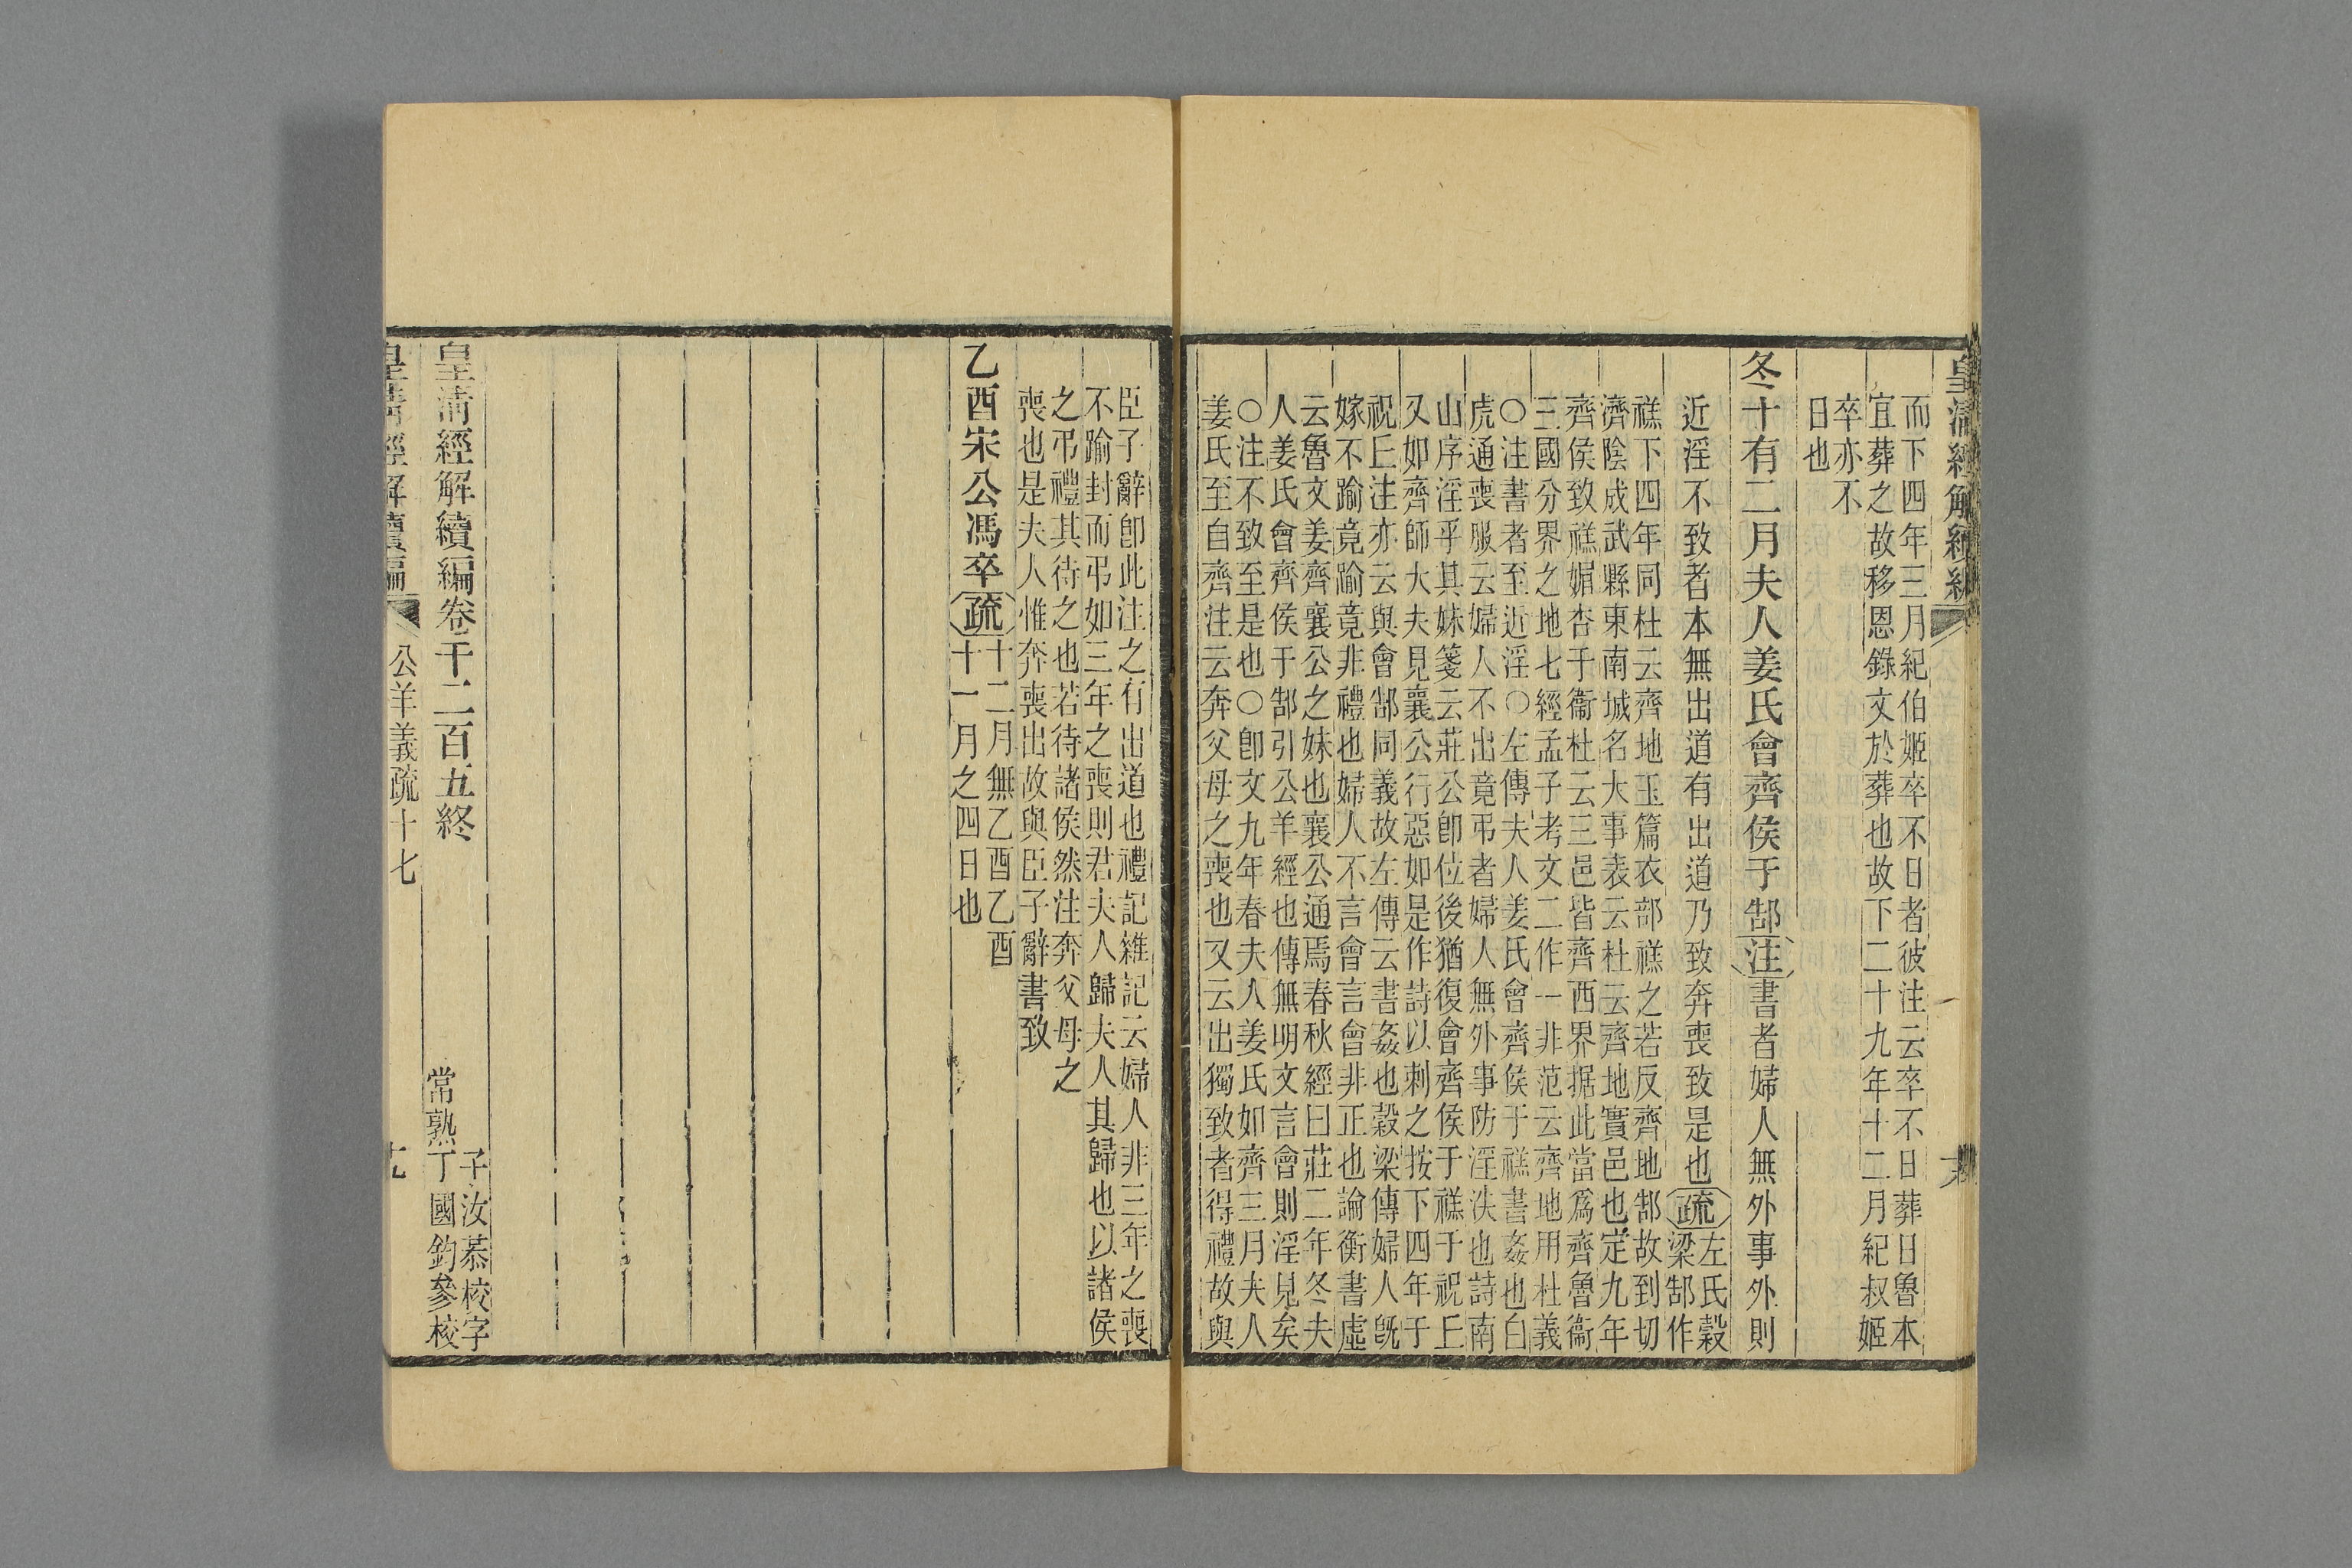 皇清經解續編
而下四年三月紀伯姬卒不日者彼注云卒不日葬日魯本
宜葬之故移恩錄文於葬也故下二十九年十二月紀叔姬
卒亦不
日也
冬十有二月夫人姜氏會齊侯于郜注書者婦人無外事外則
近淫不致者本無出道有出道乃致奔喪致是也疏
左氏穀
梁郜作
禚下四年同杜云齊地玉篇衣部禚之若反齊地郜故到切
濟陰成武縣東南城名大事表云杜云齊地實邑也定九年
齊侯致禚媚杏于衞杜云三邑皆齊西界据此當爲齊魯衞
三國分界之地七經孟子考文二作一非范云齊地用杜義
○注書者至近淫○左傳夫人姜氏會齊侯于禚書姦也白
虎通喪服云婦人不出竟弔者婦人無外事防淫泆也詩南
山序淫乎其妹箋云莊公卽位後猶復會齊侯于禚于祝丘
又如齊師大夫見襄公行惡如是作詩以刺之按下四年于
祝丘注亦云與會郜同義故左傳云書姦也穀梁傳婦人旣
嫁不踰竟踰竟非禮也婦人不言會言會非正也論衡書虛
云魯文姜齊襄公之妹也襄公通焉春秋經曰莊二年冬夫
人姜氏會齊侯于郜引公羊經也傳無明文言會則淫見矣
○注不致至是也○卽文九年春夫人姜氏如齊三月夫人
姜氏至自齊注云奔父母之喪也又云出獨致者得禮故與
臣子辭卽此注之有出道也禮記雜記云婦人非三年之喪
不踰封而弔如三年之喪則君夫人歸夫人其歸也以諸侯
之弔禮其待之也若待諸侯然注奔父母之
喪也是夫人惟奔喪出故與臣子辭書致
乙酉宋公馮卒疏
十二月無乙酉乙酉
十一月之四日也
皇清經解續編卷千二百五終
子汝恭校字
常熟丁國鈞參校
皇清經解續編
公羊義疏十七